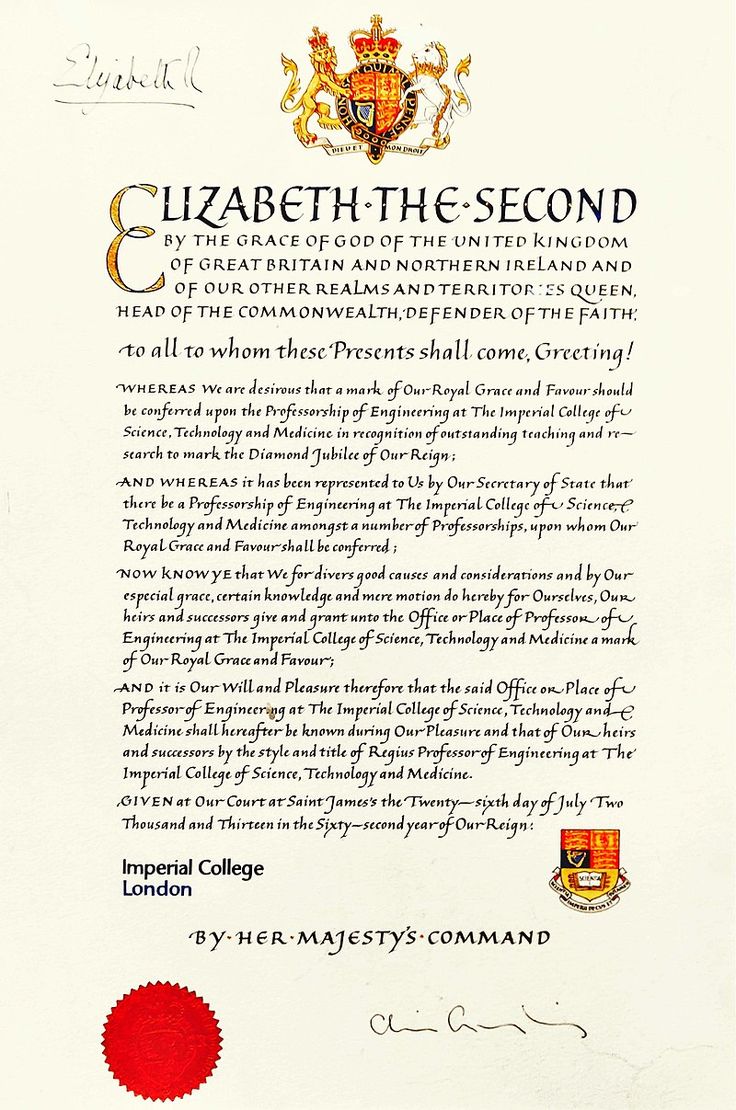 Elizabeth R
HONI SOIT QUI MAL Y PENSE
DIEU ET MON DROIT
ELIZABETH·THE·SECOND
BY THE GRACE OF GOD OF THE UNITED KINGDOM
OF GREAT BRITAIN AND NORTHERN IRELAND AND
OF OUR OTHER REALMS AND TERRITORIES QUEEN,
HEAD OF THE COMMONWEALTH, DEFENDER OF THE FAITH,
to all to whom these Presents shall come, Greeting!
WHEREAS We are desirous that a mark of Our Royal Grace and Favour should
be conferred upon the Professorship of Engineering at The Imperial College of
Science, Technology and Medicine in recognition of outstanding teaching and re-
search to mark the Diamond Jubilee of Our Reign;
AND WHEREAS it has been represented to Us by Our Secretary of State that
there be a Professorship of Engineering at The Imperial College of Science,
Technology and Medicine amongst a number of Professorships, upon whom Our
Royal Grace and Favour shall be conferred;
NOW KNOW YE that We for divers good causes and considerations and by Our
especial grace, certain knowledge and mere motion do hereby for Ourselves, Our
heirs and successors give and grant unto the Office or Place of Professor of
Engineering at The Imperial College of Science, Technology and Medicine a mark
of Our Royal Grace and Favour;
AND it is Our Will and Pleasure therefore that the said Office or Place of
Professor of Engineering at The Imperial College of Science, Technology and
Medicine shall hereafter be known during Our Pleasure and that of Our heirs
and successors by the style and title of Regius Professor of Engineering at The
Imperial College of Science, Technology and Medicine.
GIVEN at Our Court at Saint James's the Twenty-sixth day of July Two
Thousand and Thirteen in the Sixty-second year of Our Reign:
Imperial College
London
SCIENTIA
BY·HER·MAJESTY'S·COMMAND